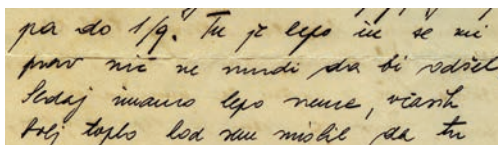 pa do 1/9. Tu je lepo in se mi
prav nič ne mudi da bi odšel
Sedaj imamo lepo vreme, včasih
bolj toplo kod sem mislil da tu